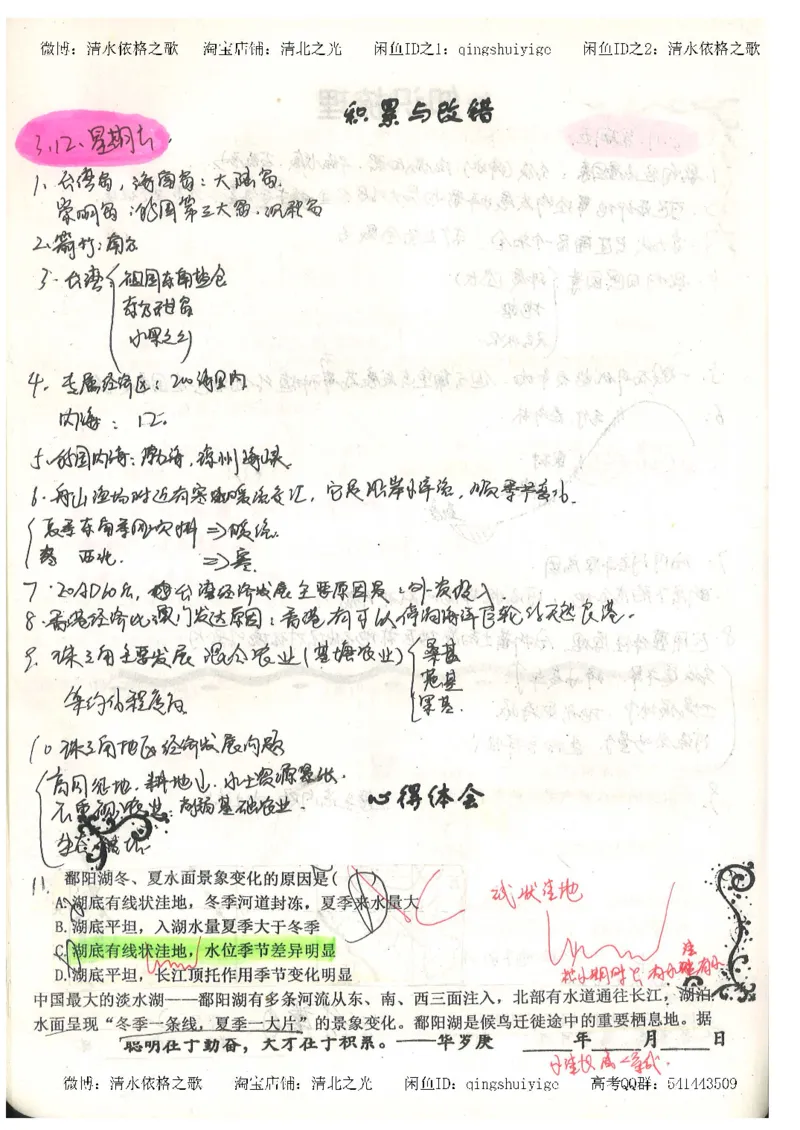 微博：清水依格之歌 淘宝店铺：清北之光 闲鱼ID之1：qingshuiyige 闲鱼ID之2：清水依格之歌
积累与改错
3.12.星期六.
1、台湾岛，海南岛：大陆岛.
崇明岛：我国第三大岛，沉积岛
2.箭竹：南方
3.台湾 祖国东南盐仓
东方甜岛
水果之乡
4.专属经济区：200海里内
内海：12.
5.我国内海：渤海，琼州海峡.
6.舟山渔场附近有寒暖流交汇，它是沿岸洋流，
夏季东南季风 ⇒暖流.
西北. ⇒寒.
7.20世纪60年，台湾经济发展主要原因是：外资投入.
8.香港经济比澳门发达原因：香港有可以停泊海洋巨轮的天然良港.
9.珠三角主要发展混合农业（基塘农业） 桑基
蔗基
果基.
10 珠三角地区经济发展问题
耕地少，水土资源
不重视农业，削弱基础农业.
心得体会
生态
11. 鄱阳湖冬、夏水面景象变化的原因是(
A.湖底有线状洼地，冬季河道封冻，夏季来水量大
B.湖底平坦，入湖水量夏季大于冬季
C.湖底有线状洼地，水位季节差异明显
D.湖底平坦，长江顶托作用季节变化明显
C
状洼地
中国最大的淡水湖——鄱阳湖有多条河流从东、南、西三面注入，北部有水道通往长江，湖泊
水面呈现“冬季一条线，夏季一大片”的景象变化。鄱阳湖是候鸟迁徙途中的重要栖息地。据
聪明在于勤奋，天才在于积累。——华罗庚 年 月 日
微博：清水依格之歌 淘宝店铺：清北之光 闲鱼ID：qingshuiyige 高考QQ群：541443509